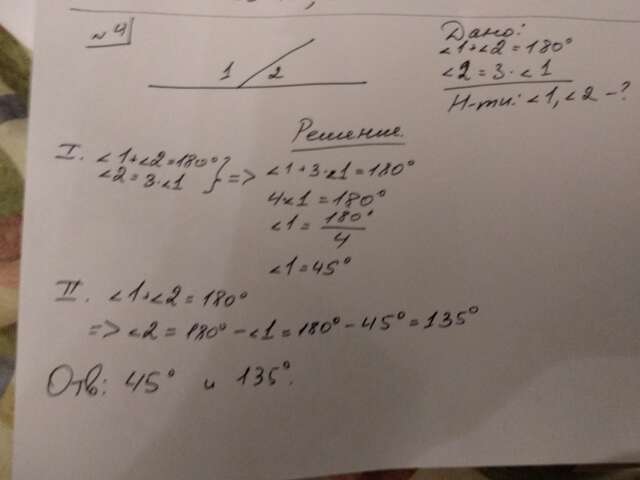 №4
1
2
Дано:
<1+<2=180°
<2=3·<1
Н-ти: <1, <2 -?
Решение.
I. <1+<2=180°
<2=3·<1 } => <1+3<1=180°
4<1=180°
<1=180°/4
<1=45°
II. <1+<2=180°
=> <2=180°-<1=180°-45°=135°
Отв: 45° и 135°.